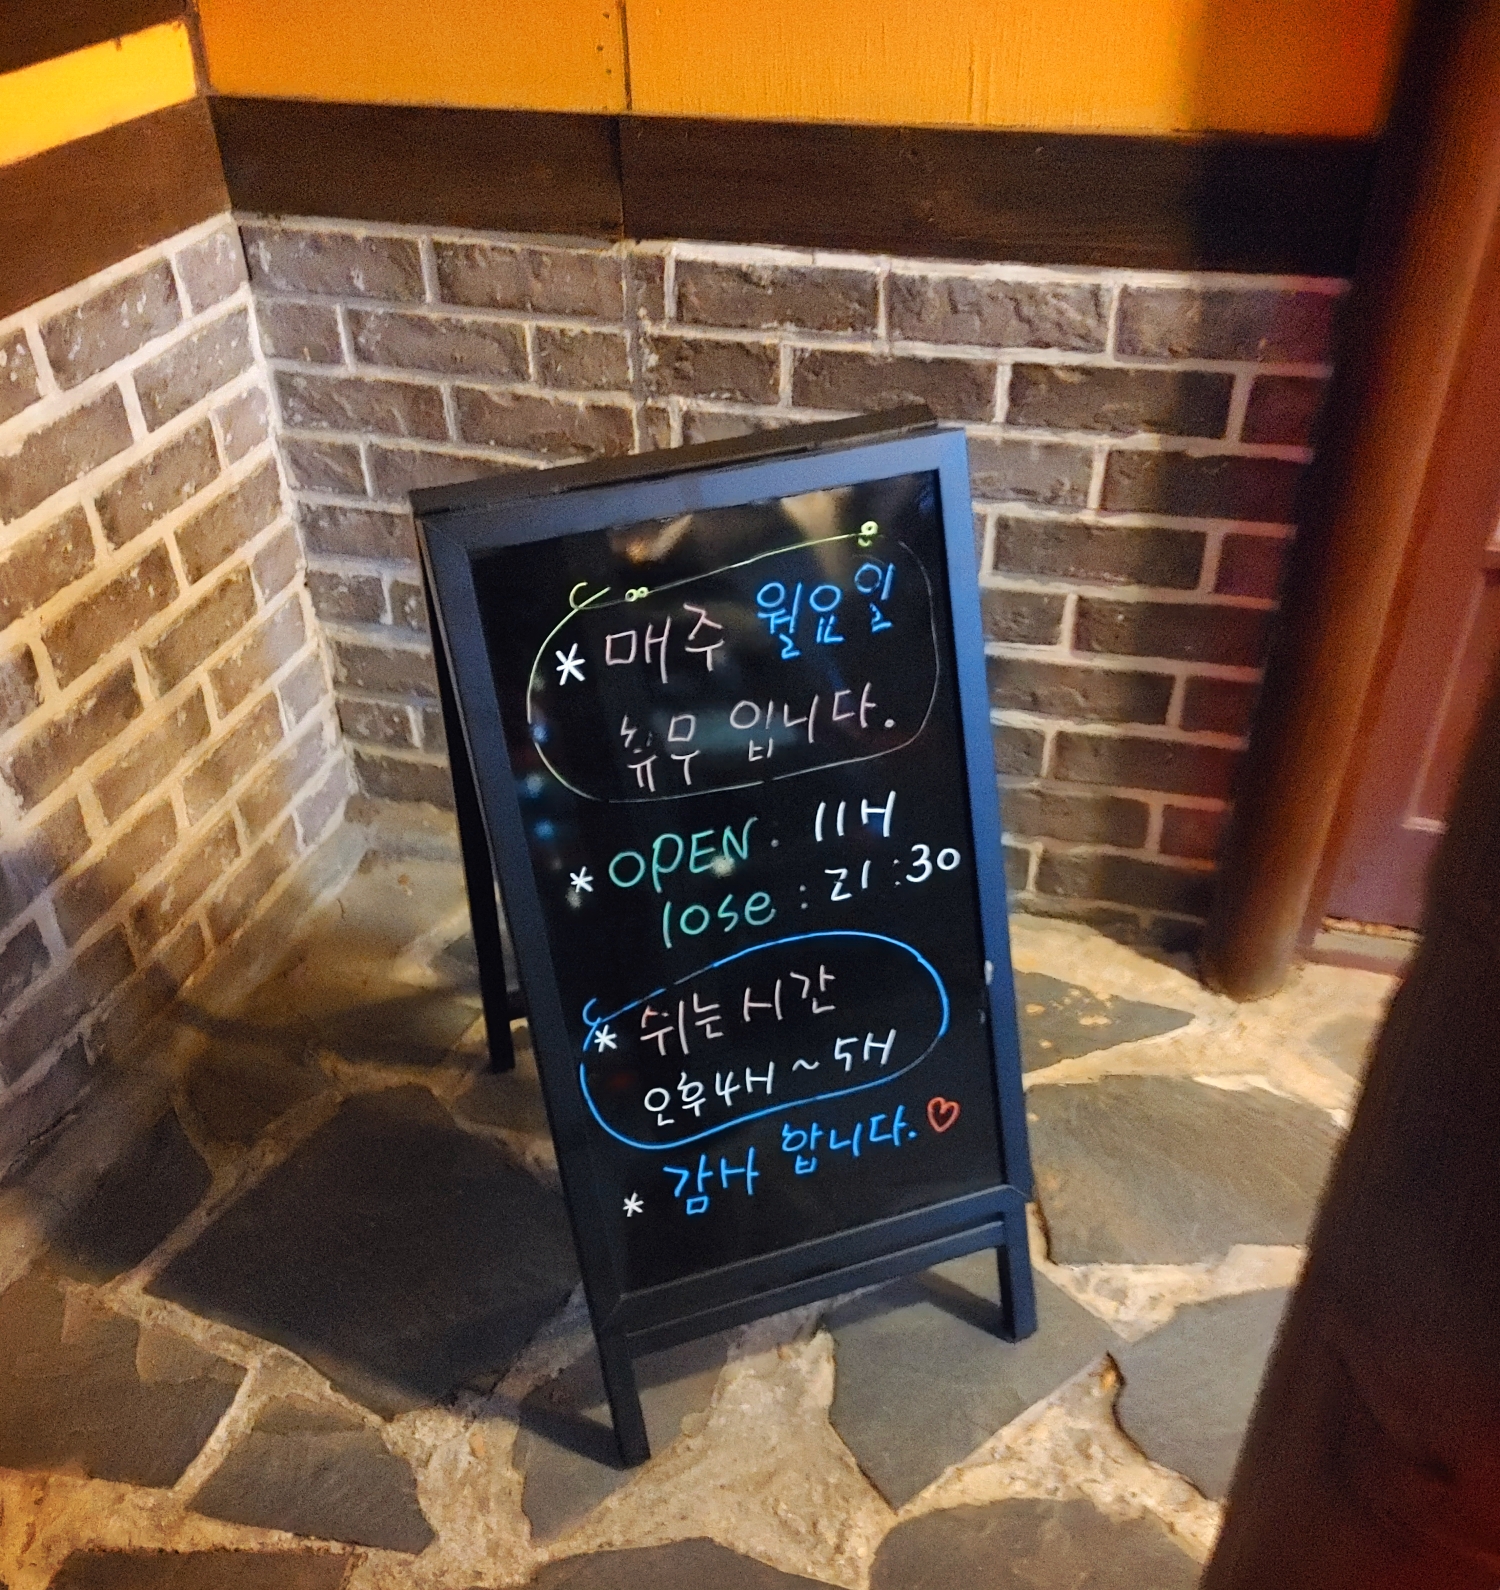 * 매주 월요일
휴무 입니다.
* OPEN. 11H
lose : 21 :30
* 쉬는시간
오후4H ~ 5H
* 감사 합니다. ♡